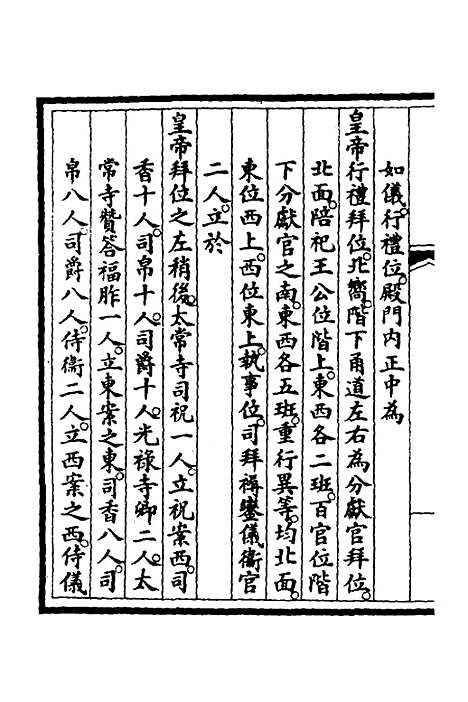 如儀。行禮位。殿門内正中為
皇帝行禮拜位。北嚮。階下甬道左右為分獻官拜位。
北面。陪祀王公位階上。東西各二班。百官位階
下分獻官之南。東西各五班。重行異等。均北面。
東位西上。西位東上。執事位。司拜褥。鑾儀衛官
二人。立於
皇帝拜位之左稍後。太常寺司祝一人。立祝案西。司
香十人。司帛十人。司爵十人。光祿寺卿二人。太
常寺贊答福胙一人。立東案之東。司香八人。司
帛八人。司爵八人。侍衛二人。立西案之西。侍儀